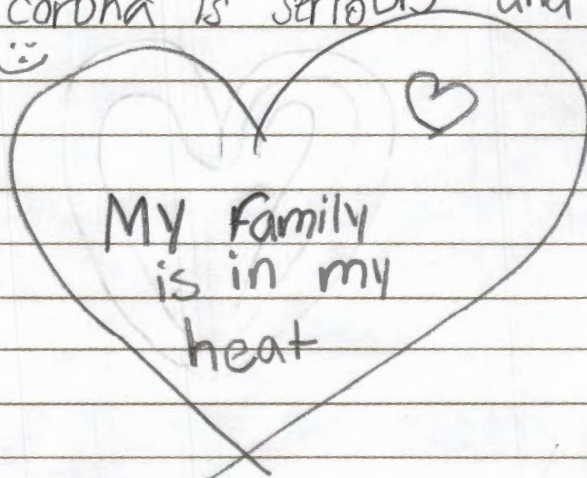 corona is seriously and
My Family
is in my
heat